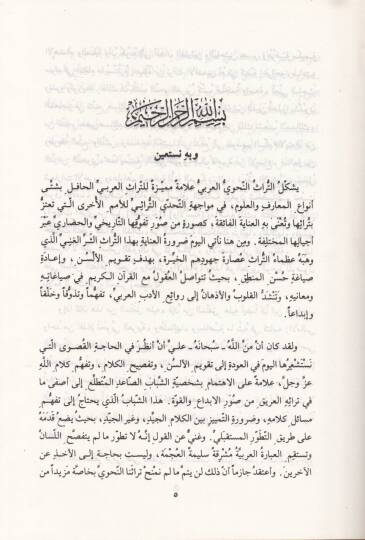 بسم الله الرحمن الرحيم
وبه نستعين
يشكّل التُّراث النَّحويّ العربيّ علامةً مميّزةً للتُّراث العربيّ الحافل بشتّى
أنواع المعارف والعلوم، في مواجهة التّحدّي التُّراثيِّ للأمم الأخرى الّتي تعتزُّ
بتُراثها وتُعْنَى به العناية الفائقة، كصورةٍ من صُوَر تفوُّقها التَّاريخيِّ والحضاريّ عَبْرَ
أجيالها المختلفة. ومن هنا تأتي اليومَ ضرورةُ العناية بهذا التُّراث الثَّرِّ الغنِيِّ الَّذي
وهَبَهُ عظماءُ التُّراث عُصارةَ جهودِهم الخيِّرة، بهدف تقويم الألْسُن، وإعادةِ
صياغةِ حُسْن المنطِق، بحيثُ تتواصل العُقولُ مع القرآن الكريم في صياغاتِه
ومعانيه، وتَنْشَدُّ القلوبُ والأذهانُ إلى روائِع الأدب العربيِّ، تفهُّماً وتذوُّقاً وخَلْقاً
وإبداعاً.
ولقد كان أنْ مَنَّ اللَّهُ ـ سُبحانَهُ ـ عليَّ أنْ أنظُرَ في الحاجة القُصوى الّتي
نَسْتَشْعِرُها اليومَ في العودة إلى تقويم الألسُن، وتفصيح الكلام، وتفهُّم كلام اللَّهِ
عزَّ وجلَّ، علامةً على الاهتمام بشخصيَّةِ الشَّبابِ الصّاعد المتطلِّع إلى أصفى ما
في تراثِه العريق من صُوَر الابداع والقوّة. هذا الشّبابُ الّذي يحتاج إلى تفهُّم
مسائل كلامِهِ، وضرورةِ التَّمييز بين الكلام الجيِّد، وغير الجيِّد، بحيث يضَعُ قَدَمَهُ
على طريق التّطوُّر المستقبليِّ. وغنيٌّ عن القول إنَّه لا تطوّر ما لم يتفصَّحِ اللّسانُ
وتستقِم العبارةُ العربيَّةُ مُشْرِقةً سليمةَ العُجْمَة، وليست بحاجة إلى الأخذ عن
الآخرين. وأعتقدُ جازماً أنَّ ذلك لن يتمَّ ما لم نمنَحْ تراثَنا النّحويَّ بخاصّة مَزيداً من
٥